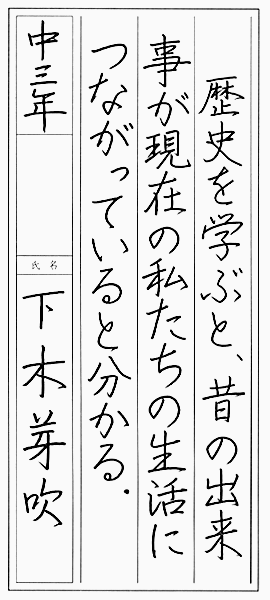 歴史を学ぶと、昔の出来
事が現在の私たちの生活に
つながっていると分かる.
中三年
氏名
下木芽吹